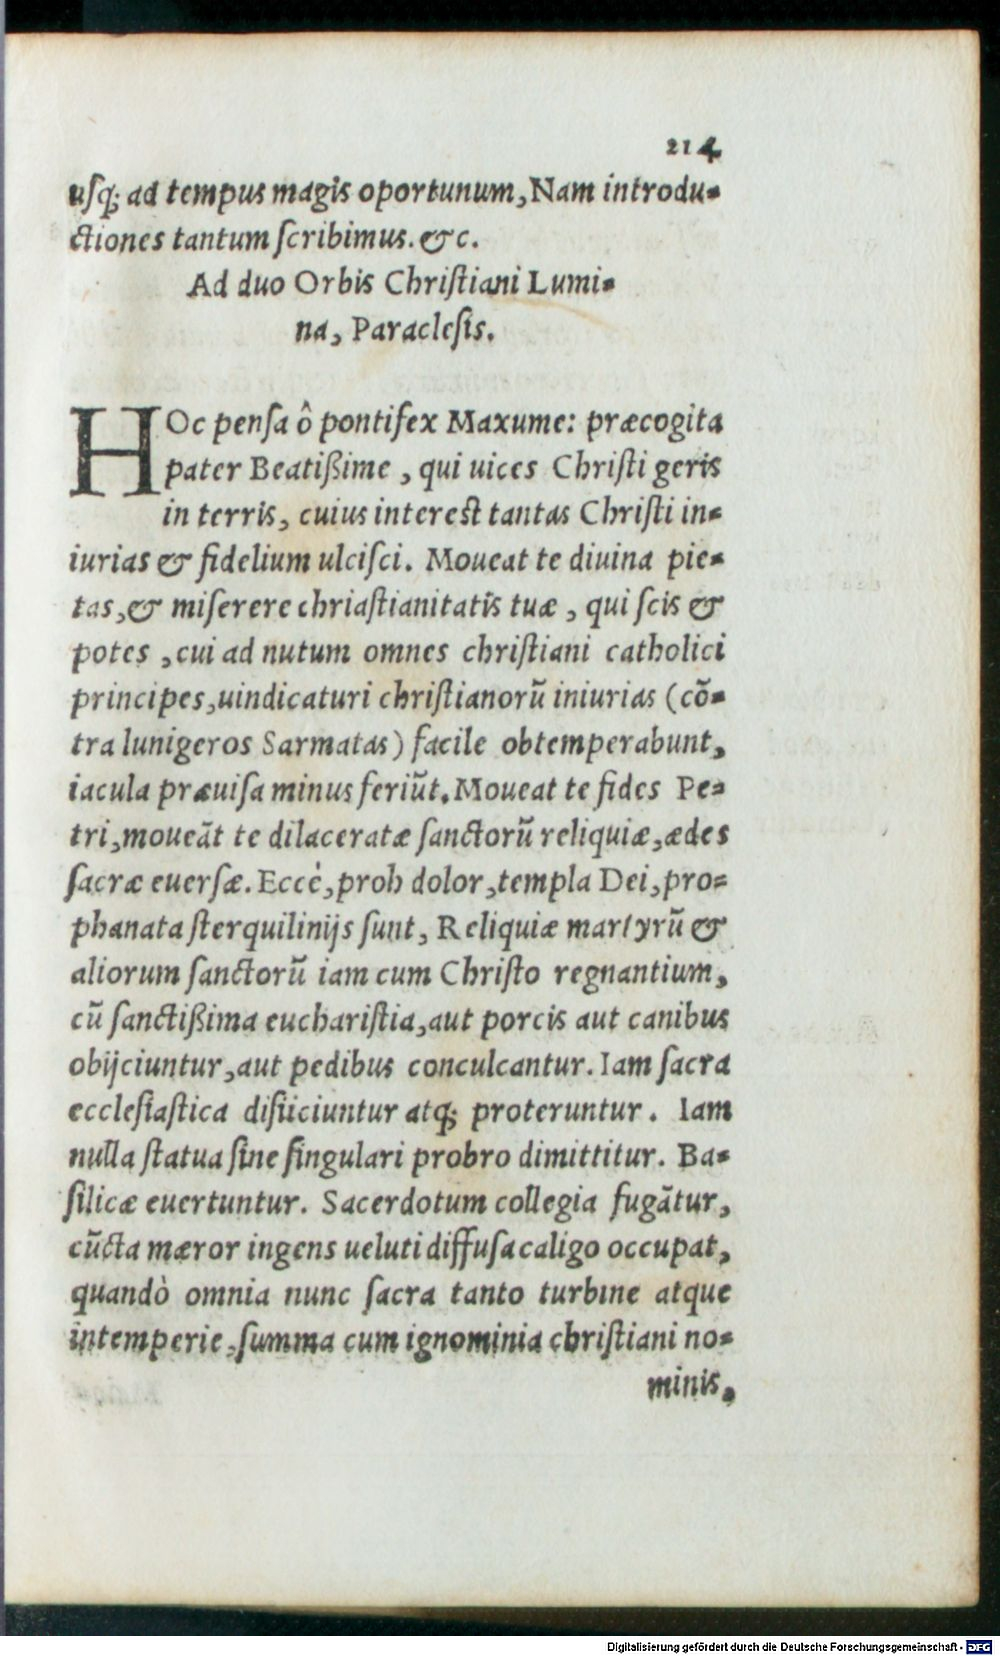 214
usq; ad tempus magis oportunum, Nam introdu-
ctiones tantum scribimus. &c.
Ad duo Orbis Christiani Lumi-
na, Paraclesis.
HOc pensa ô pontifex Maxume: præcogita
pater Beatißime, qui uices Christi geris
in terris, cuius interest tantas Christi in-
iurias & fidelium ulcisci. Moueat te diuina pie-
tas, & miserere chriastianitatis tuæ, qui scis &
potes, cui ad nutum omnes christiani catholici
principes, uindicaturi christianorũ iniurias (cõ-
tra lunigeros Sarmatas) facile obtemperabunt,
iacula præuisa minus feriũt. Moueat te fides Pe-
tri, moueãt te dilaceratæ sanctorũ reliquiæ, ædes
sacræ euersæ. Eccè, proh dolor, templa Dei, pro-
phanata sterquilinijs sunt, Reliquiæ martyrũ &
aliorum sanctorũ iam cum Christo regnantium,
cũ sanctißima eucharistia, aut porcis aut canibus
obijciuntur, aut pedibus conculcantur. Iam sacra
ecclesiastica disiiciuntur atq; proteruntur. Iam
nulla statua sine singulari probro dimittitur. Ba-
silicæ euertuntur. Sacerdotum collegia fugãtur,
cũcta mæror ingens ueluti diffusa caligo occupat,
quandò omnia nunc sacra tanto turbine atque
intemperie, summa cum ignominia christiani no-
minis,
Digitalisierung gefördert durch die Deutsche Forschungsgemeinschaft - DFG